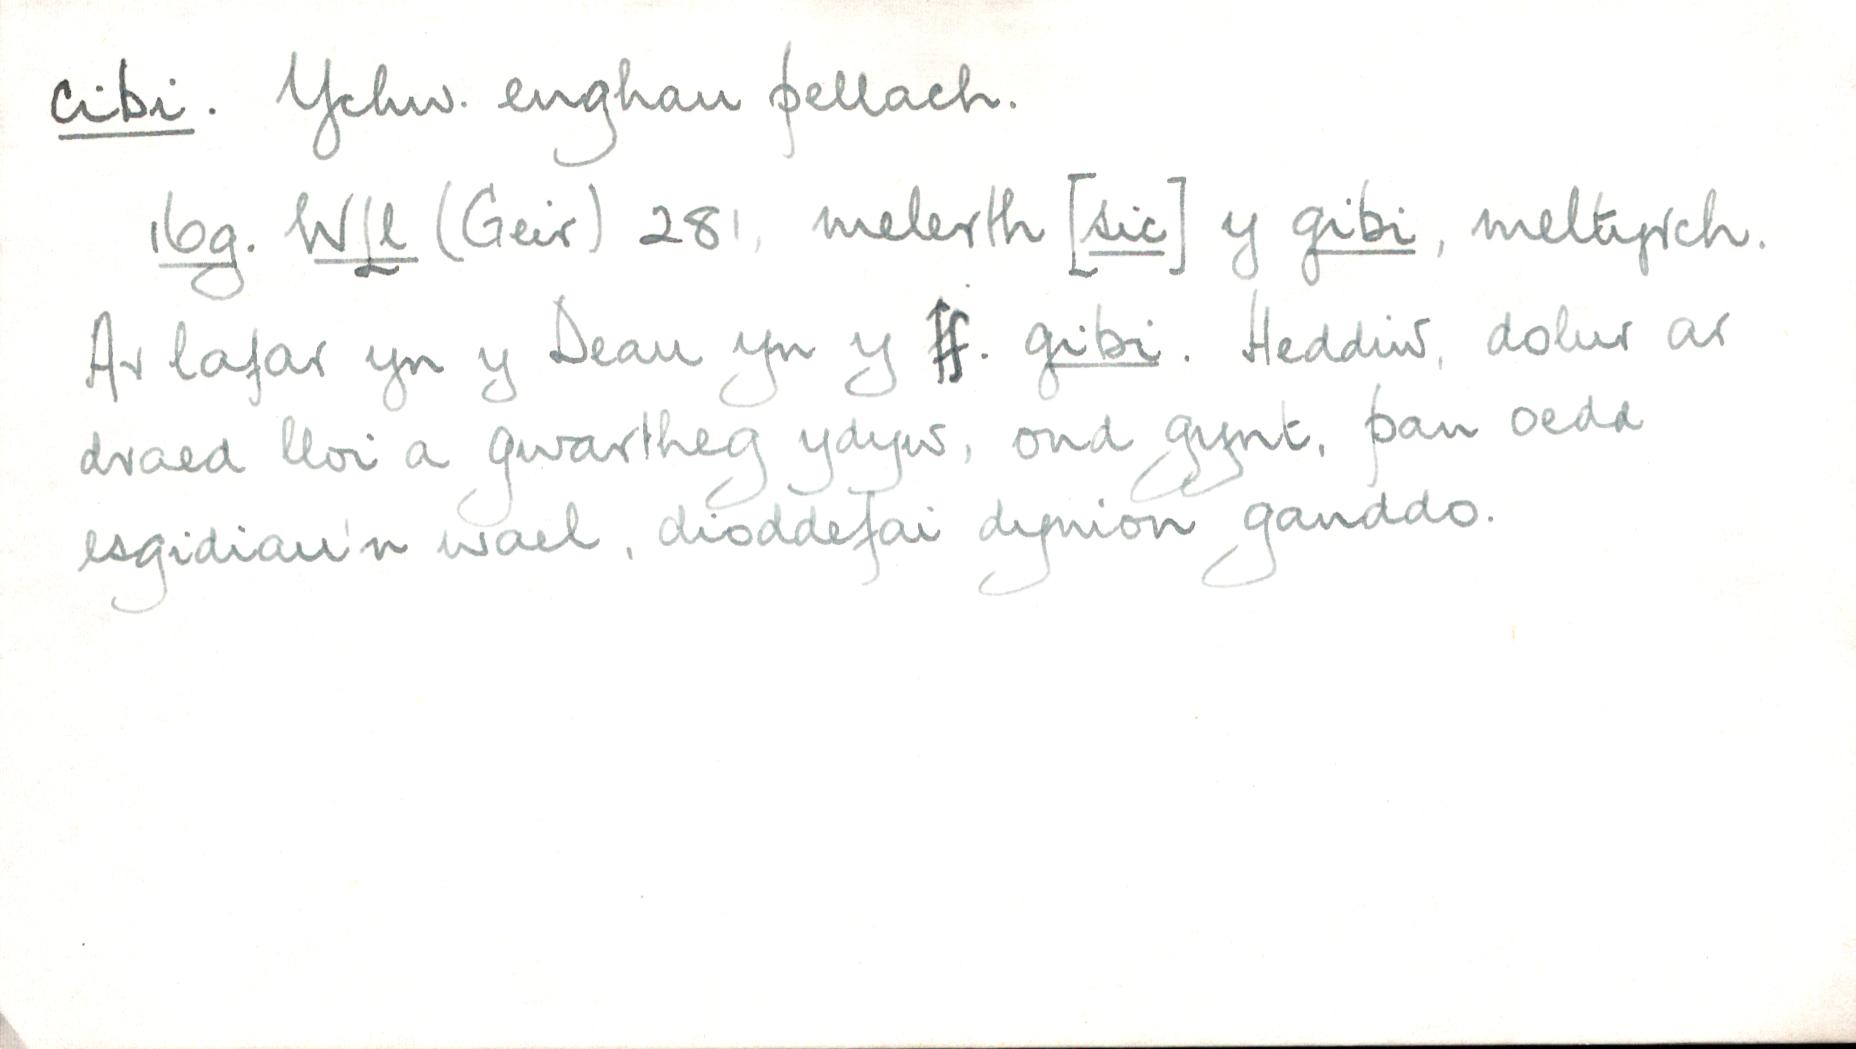 cibi. Ychw. enghau pellach.
16g. WLl (Geir) 281, melerth [sic] y gibi, meltyrch.
Ar lafar yn y Deau yn y ff. gibi. Heddiw, dolur ar
draed lloi a gwartheg ydyw, ond gynt, pan oedd
esgidiau'n wael, dioddefai dynion ganddo.